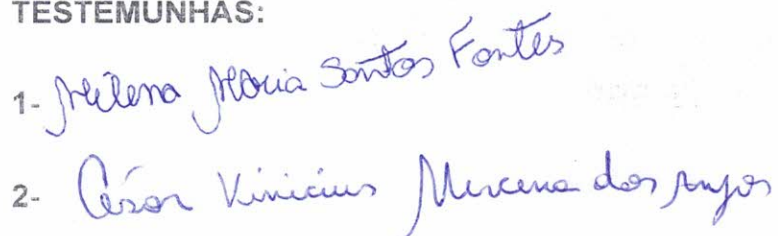 TESTEMUNHAS:
1- Milena Maria Santos Fontes
2- César Vinicius Mercena dos Anjos